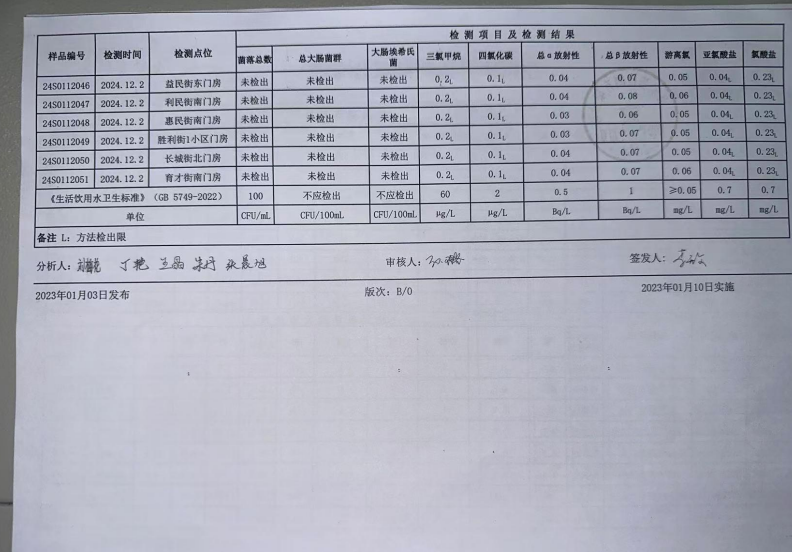 检测项目及检测结果
样品编号 检测时间 检测点位 菌落总数 总大肠菌群 大肠埃希氏菌 三氯甲烷 四氯化碳 总α放射性 总β放射性 游离氯 亚氯酸盐 氯酸盐
24S0112046 2024.12.2 益民街东门房 未检出 未检出 未检出 0.2L 0.1L 0.04 0.07 0.05 0.04L 0.23L
24S0112047 2024.12.2 利民街南门房 未检出 未检出 未检出 0.2L 0.1L 0.04 0.08 0.06 0.04L 0.23L
24S0112048 2024.12.2 惠民街南门房 未检出 未检出 未检出 0.2L 0.1L 0.03 0.06 0.05 0.04L 0.23L
24S0112049 2024.12.2 胜利街1小区门房 未检出 未检出 未检出 0.2L 0.1L 0.03 0.07 0.05 0.04L 0.23L
24S0112050 2024.12.2 长城街北门房 未检出 未检出 未检出 0.2L 0.1L 0.04 0.07 0.05 0.04L 0.23L
24S0112051 2024.12.2 育才街南门房 未检出 未检出 未检出 0.2L 0.1L 0.04 0.07 0.06 0.04L 0.23L
《生活饮用水卫生标准》(GB 5749-2022) 100 不应检出 不应检出 60 2 0.5 1 ≥0.05 0.7 0.7
单位 CFU/mL CFU/100mL CFU/100mL μg/L μg/L Bq/L Bq/L mg/L mg/L mg/L
备注 L:方法检出限
分析人: 审核人: 签发人:
2023年01月03日发布 版次:B/0 2023年01月10日实施